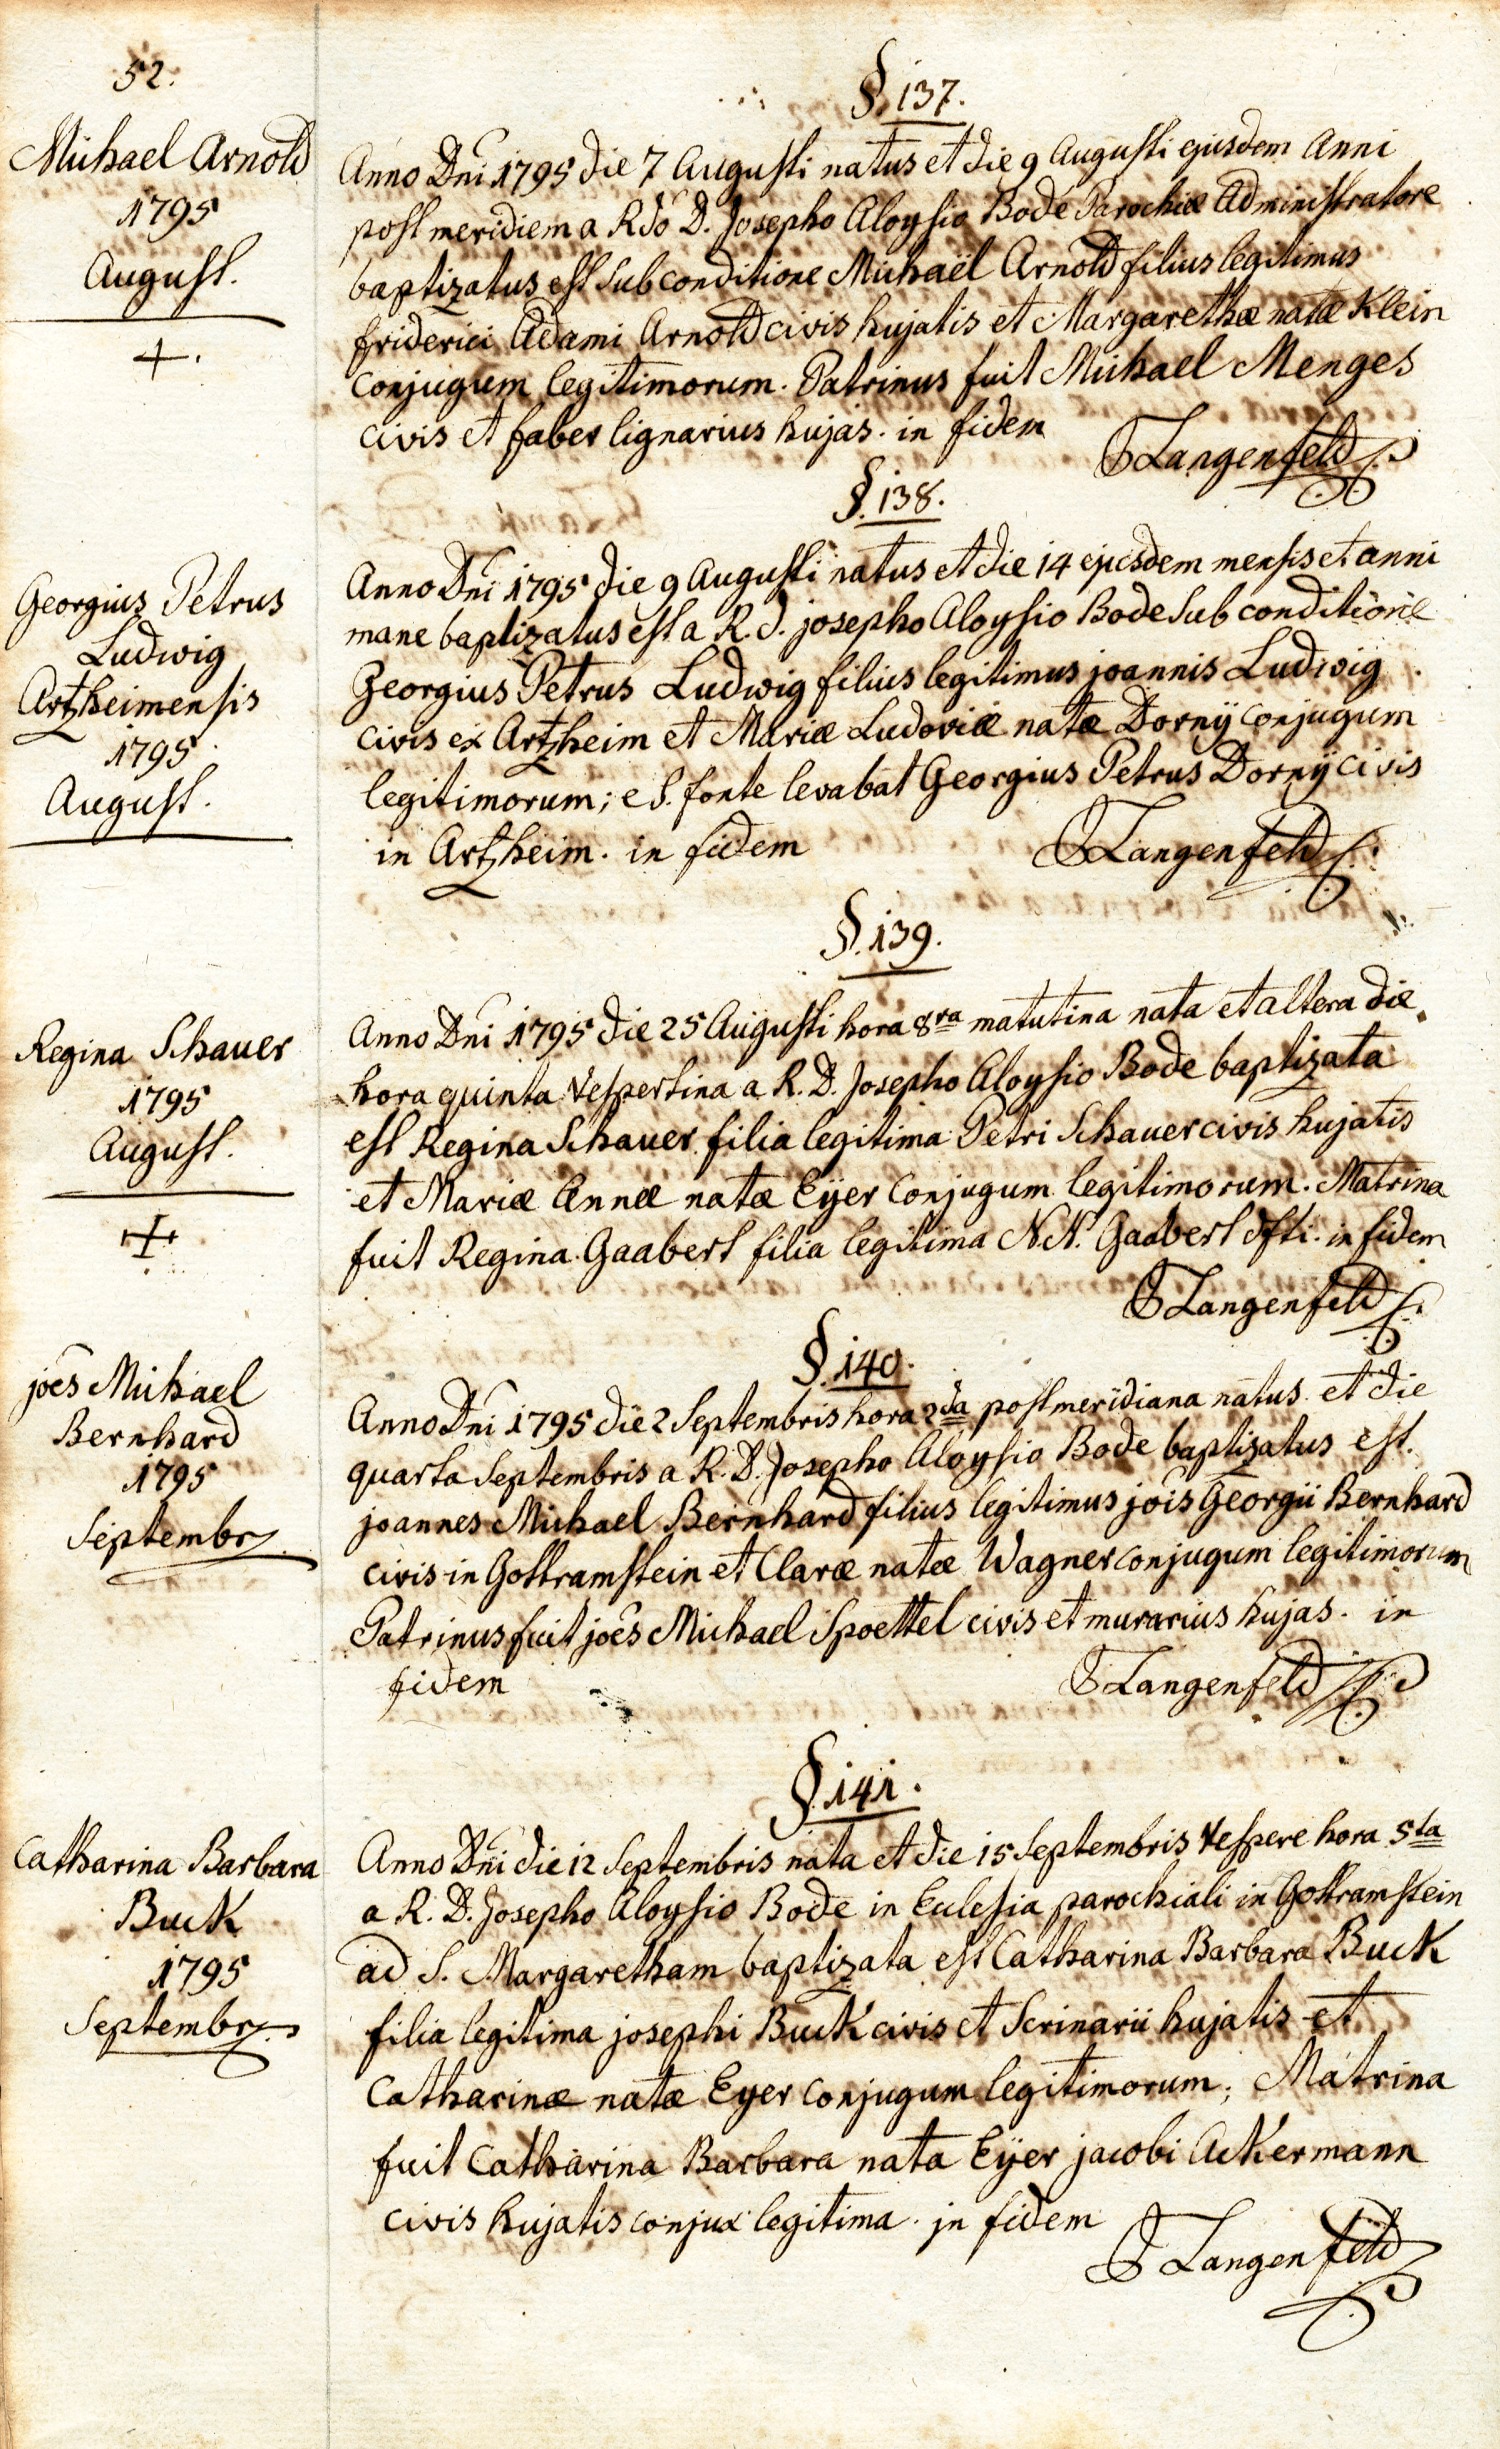 52.
§. 137.
Michael Arnold
1795
August.
+.
Anno Dni 1795 die 7 Augusti natus et die 9 Augusti ejusdem Anni
post meridiem a Rdo D. Josepho Aloysio Bode Parochiæ Administratore
baptizatus est sub conditione Michaël Arnold filius legitimus
friderici Adami Arnold civis hujatis et Margarethæ natæ Klein
conjugum legitimorum. Patrinus fuit Michael Menges
civis et faber lignarius hujas. in fidem
Langenfeld
§. 138.
Georgius Petrus
Ludwig
Artzheimensis
1795
August.
Anno Dni 1795 die 9 Augusti natus et die 14 ejusdem mensis et anni
mane baptizatus est a R. d. josepho Aloysio Bode sub conditione
Georgius Petrus Ludwig filius legitimus joannis Ludwig
civis ex Artzheim et Mariæ Ludoviæ natæ Dornÿ conjugum
legitimorum; e S. fonte levabat Georgius Petrus Dornÿ civis
in Artzheim. in fidem
Langenfeld
§. 139.
Regina Schauer
1795
August.
+
Anno Dni 1795 die 25 Augusti hora 8ra matutina nata et altera die
hora quinta vespertina a R. D. Josepho Aloysio Bode baptizata
est Regina Schauer filia legitima Petri Schauer civis hujatis
et Mariæ Annæ natæ Eÿer conjugum legitimorum. Matrina
fuit Regina Gaabert filia legitima N.N. Gaabert dfti. in fidem
Langenfeld
§. 140.
joes Michael
Bernhard
1795
Septembr
Anno Dni 1795 die 2 Septembris hora 2da postmeridiana natus et die
quarta Septembris a R. D. Josepho Aloysio Bode baptizatus est.
joannes Michael Bernhard filius legitimus jois Georgii Bernhard
civis in Gottramstein et Claræ natæ Wagner conjugum legitimorum
Patrinus fuit joes Michael Spoettel civis et murarius hujas. in
fidem
Langenfeld
§. 141.
Catharina Barbara
Buck
1795
Septembr
Anno Dni die 12 Septembris nata et die 15 Septembris vespere hora 5ta
a R. D. Josepho Aloysio Bode in Eclesia parochiali in Gottramstein
ad S. Margaretham baptizata est Catharina Barbara Buck
filia legitima josephi Buck civis et Scrinarii hujatis et
Catharinæ natæ Eyer conjugum legitimorum; Matrina
fuit Catharina Barbara nata Eÿer jacobi Ackermann
civis hujatis conjux legitima. jn fidem
Langenfeld